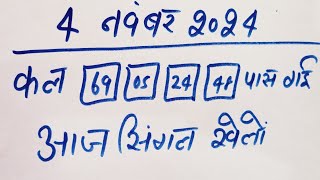 4 नवंबर 2024
कल 69 05 24 48 पास गई
आज सिंगल खेलों